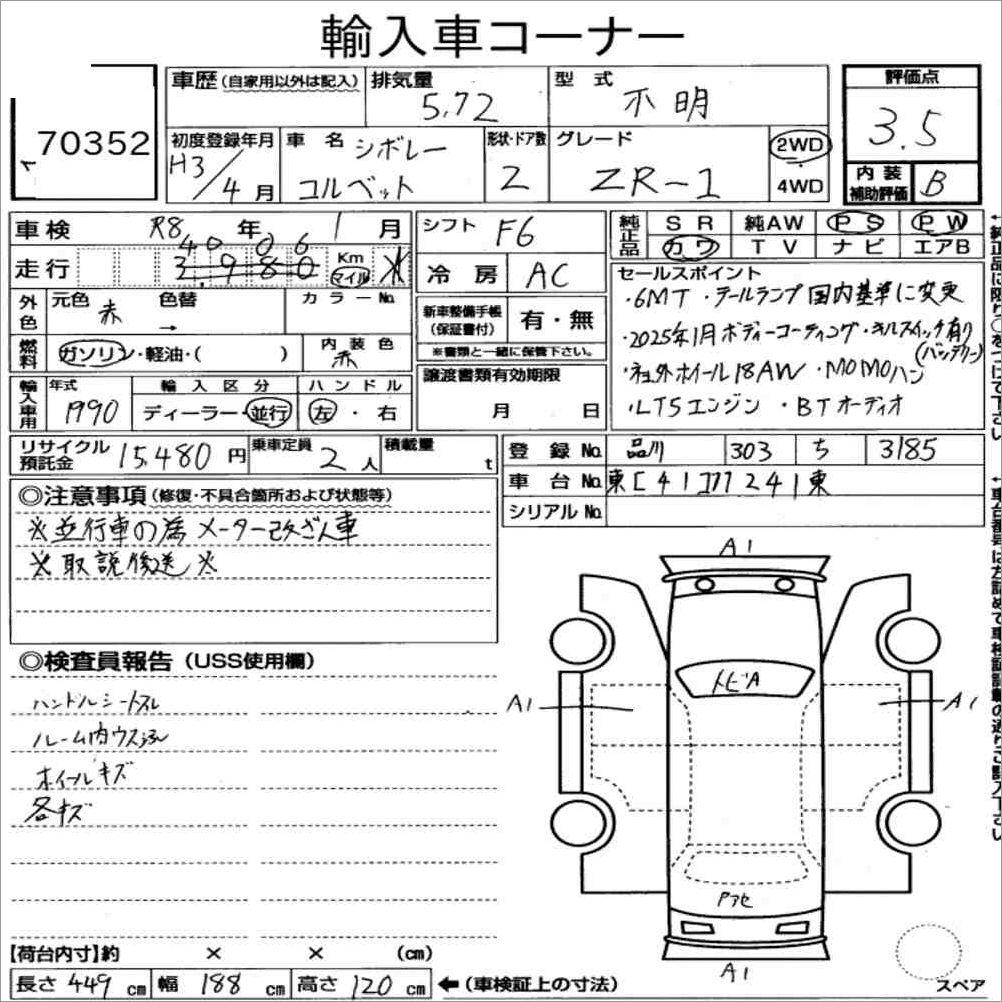 輸入車コーナー
70352
車歴(自家用以外は記入)
排気量 5.72
型式 不明
評価点 3.5
初度登録年月 H3/4月
車名 シボレー コルベット
形状・ドア数 2
グレード ZR-1
2WD
4WD
内装補助評価 B
車検 R8年1月
シフト F6
純正品 SR 純AW PS PW
カワ TV ナビ エアB
走行 4006 3,980 Km マイル ※
冷房 AC
セールスポイント
・6MT ・テールランプ国内基準に変更
・2025年1月ボディーコーティング・キルスイッチ有り
(バッテリー)
・社外ホイール18AW ・MOMOハン
・LT5エンジン ・BTオーディオ
外色 元色 赤 色替 → カラーNo.
新車整備手帳(保証書付) 有・無
※書類と一緒に保管下さい。
燃料 ガソリン・軽油・( )
内装色 赤
譲渡書類有効期限
月 日
輸入車用 年式 1990
輸入区分 ディーラー・並行
ハンドル 左・右
リサイクル預託金 15,480円
乗車定員 2人
積載量 t
登録No. 品川 303 ち 3185
車台No. 東[41]777241東
シリアルNo.
◎注意事項(修復・不具合箇所および状態等)
※並行車の為メーター改ざん車
※取説後送※
◎検査員報告(USS使用欄)
ハンドルシートスレ
ルーム内ウス汚れ
ホイールキズ
各キズ
A1
トビA
A1
A1
Pアセ
A1
スペア
【荷台内寸】約 × × (cm)
長さ 449cm 幅 188cm 高さ 120cm ←(車検証上の寸法)